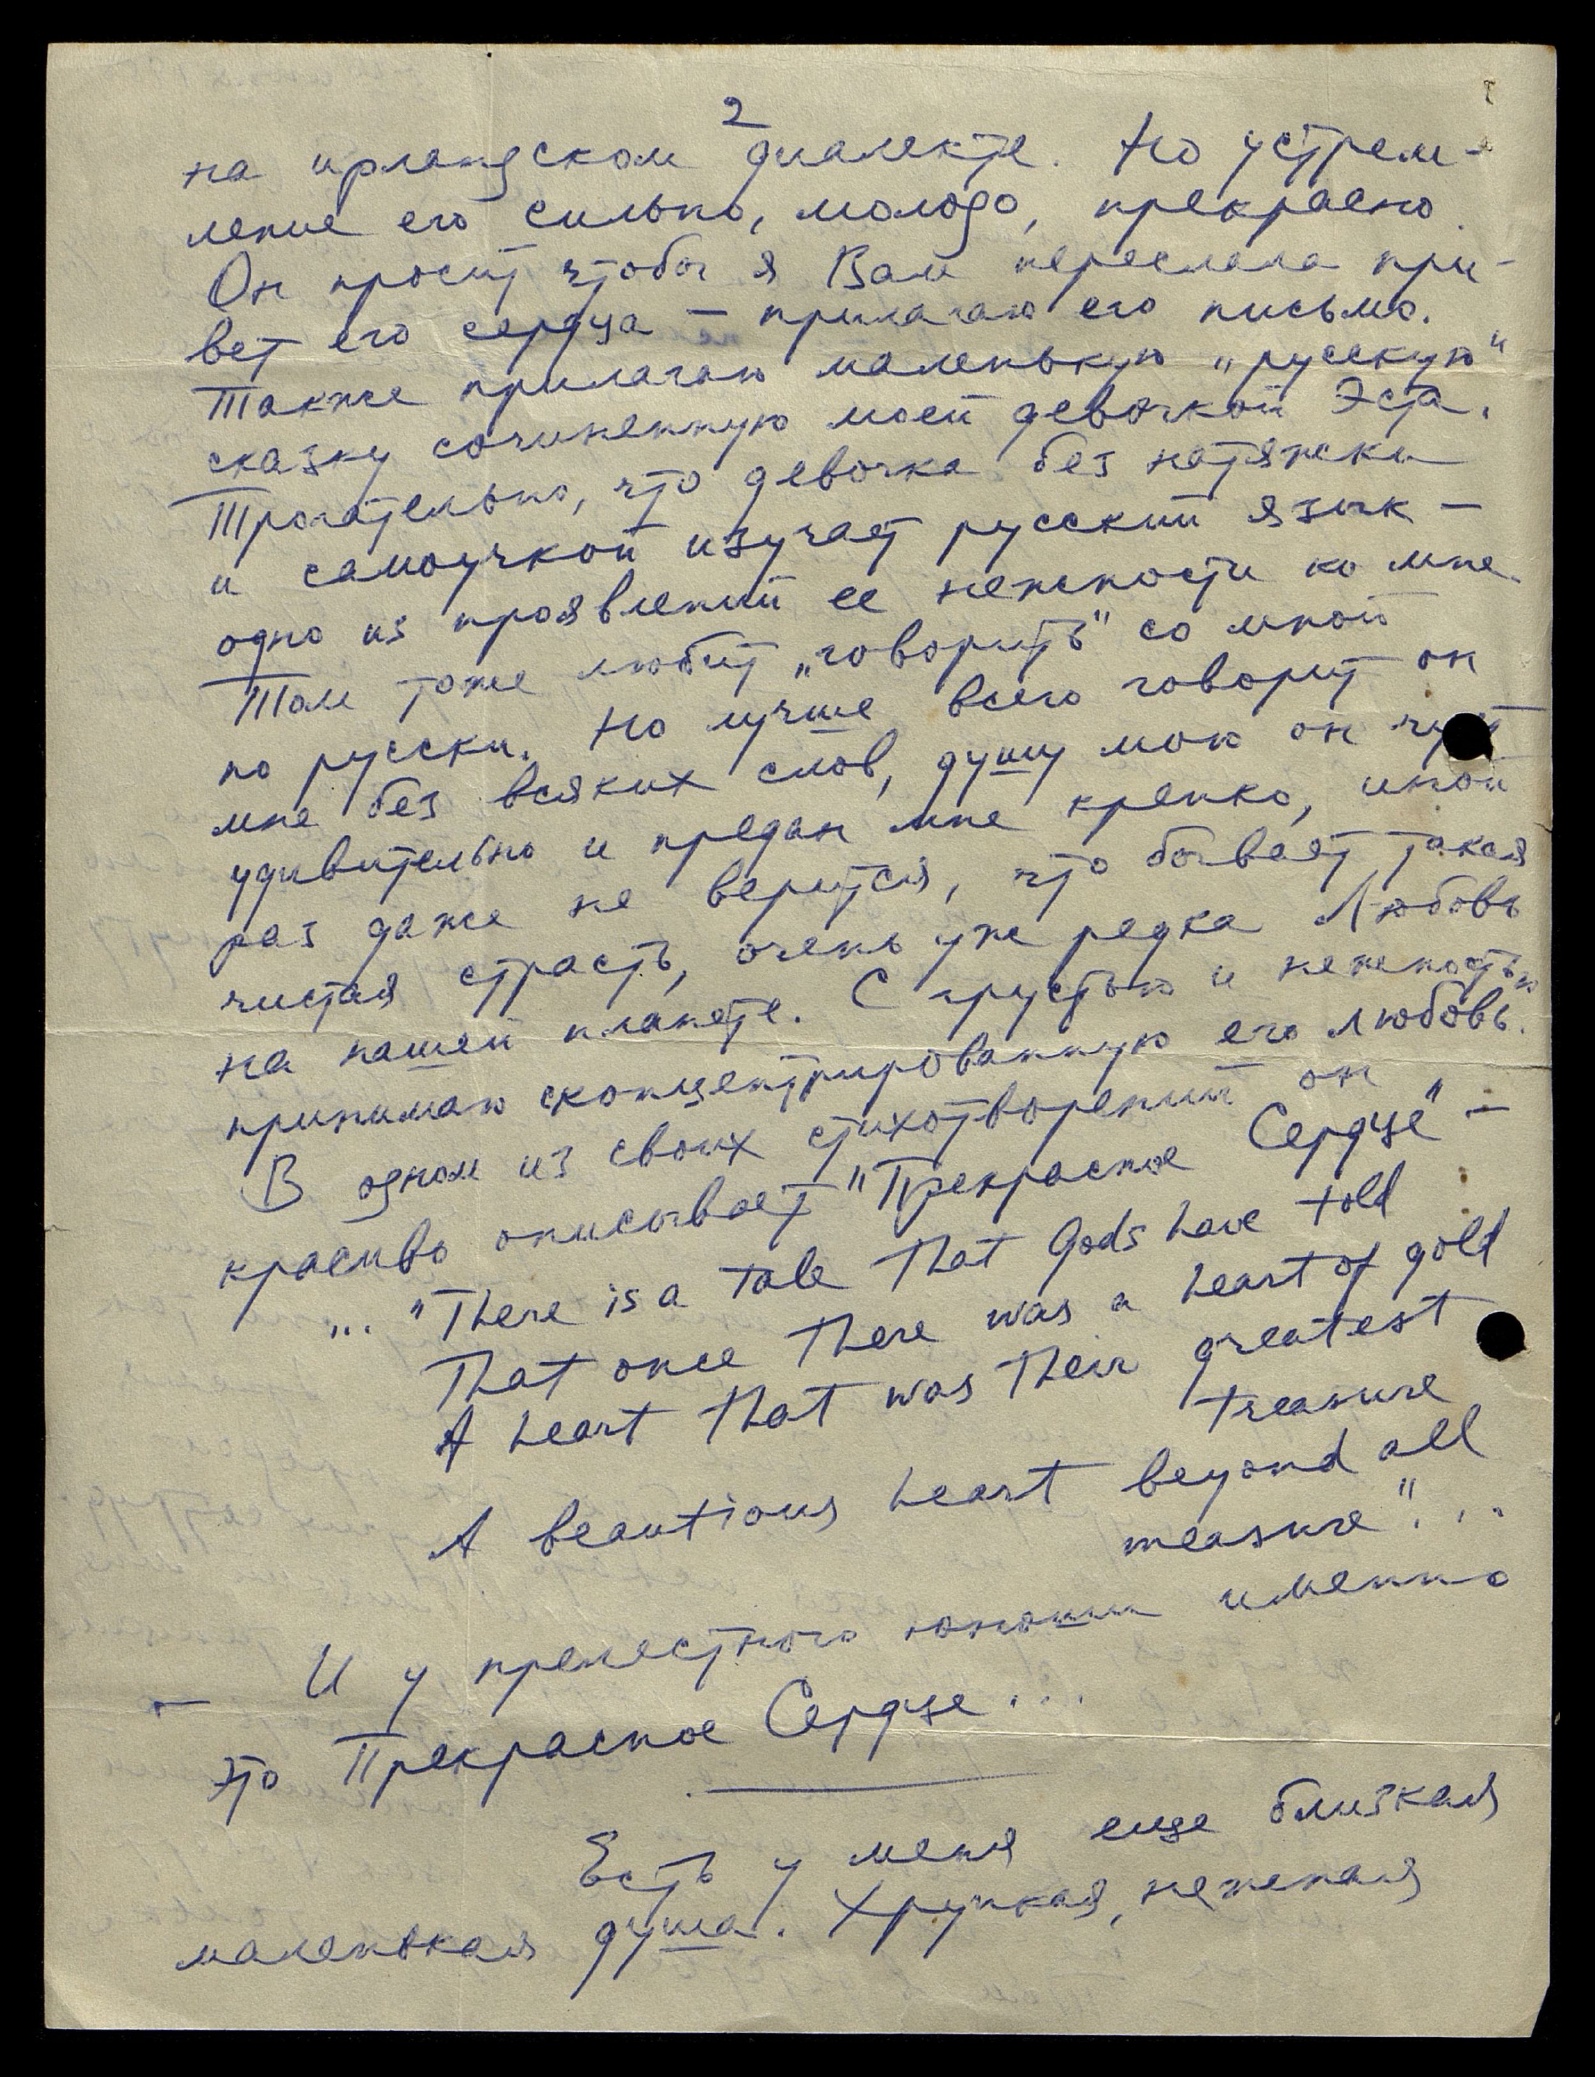 2
на ирландском диалекте. Но устрем-
ление его сильно, молодо, прекрасно.
Он просит чтобы я Вам переслала при-
вет его сердца – прилагаю его письмо.
Также прилагаю маленькую „русскую"
сказку сочиненную моей девочкой Эста.
Трогательно, что девочка без натяжки
и самоучкой изучает русский язык –
одно из проявлений ее нежности ко мне.
Том тоже любит „говорить" со мной
по русски. Но лучше всего говорит он
мне без всяких слов, душу мою он
удивительно и предан мне крепко, иной
раз даже не верится, что бывает такая
чистая страсть, очень уж редка Любовь
на нашей планете. С грустью и нежностью
принимаю сконцентрированную его любовь.
В одном из своих стихотворений он
красиво описывает "Прекрасное Сердце" –
... "There is a tale that Gods have told
That once there was a heart of gold
A heart that was their greatest
treasure
A beautious heart beyond all
measure"...
И у прелестного юноши именно
это Прекрасное Сердце...
Есть у меня еще близкая
маленькая душа. Хрупкая, нежная